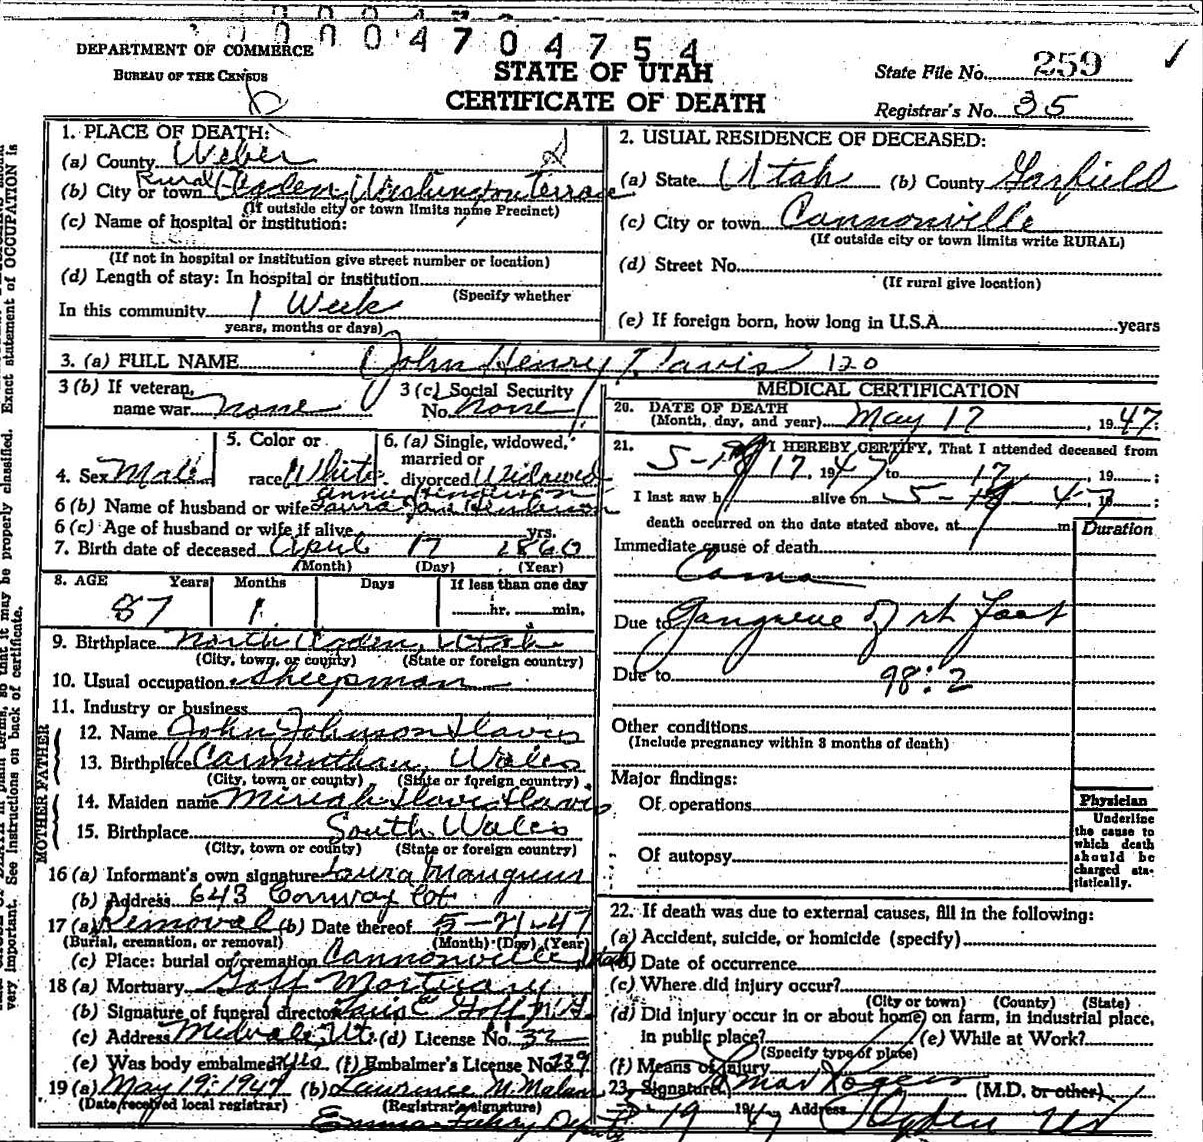 0000 4704754
DEPARTMENT OF COMMERCE
BUREAU OF THE CENSUS
STATE OF UTAH
CERTIFICATE OF DEATH
State File No. 259
Registrar's No. 35
1. PLACE OF DEATH:
(a) County Weber
(b) City or town Rural Ogden, Washington Terrace
(If outside city or town limits name Precinct)
(c) Name of hospital or institution:
(If not in hospital or institution give street number or location)
(d) Length of stay: In hospital or institution
(Specify whether
In this community 1 Week
years, months or days)
2. USUAL RESIDENCE OF DECEASED:
(a) State Utah (b) County Garfield
(c) City or town Cannonville
(If outside city or town limits write RURAL)
(d) Street No.
(If rural give location)
(e) If foreign born, how long in U.S.A. years
3. (a) FULL NAME John Henry J. Davis 120
3 (b) If veteran, name war none
3 (c) Social Security No. none
4. Sex Male
5. Color or race White
6. (a) Single, widowed, married or divorced Widowed
6 (b) Name of husband or wife Laura Jane Henderson
Annie Henderson
6 (c) Age of husband or wife if alive yrs.
7. Birth date of deceased April 17 1860
(Month) (Day) (Year)
8. AGE Years Months Days If less than one day
87 1 hr. min.
9. Birthplace North Ogden, Utah
(City, town, or county) (State or foreign country)
10. Usual occupation Sheepman
11. Industry or business
FATHER
12. Name John Johnson Davis
13. Birthplace Carminthan, Wales
(City, town or county) (State or foreign country)
MOTHER
14. Maiden name Miriah Davis Davis
15. Birthplace South Wales
(City, town or county) (State or foreign country)
16 (a) Informant's own signature Laura Mangum
(b) Address 643 Conway Cot
17 (a) Removal (b) Date thereof 5-21-47
(Burial, cremation, or removal) (Month) (Day) (Year)
(c) Place: burial or cremation Cannonville, Utah
18 (a) Mortuary Goff Mortuary
(b) Signature of funeral director Goff
(c) Address Midvale, Ut. (d) License No. 32
(e) Was body embalmed? yes (f) Embalmer's License No. 239
19 (a) May 19, 1947 (b) Lawrence M. Malan
(Date received local registrar) (Registrar's signature)
Emma Deputy
MEDICAL CERTIFICATION
20. DATE OF DEATH
(Month, day, and year) May 17, 1947.
21. I HEREBY CERTIFY, That I attended deceased from
5- 17, 1947 to 17, 19 ;
I last saw h alive on 5- 47, 19 ;
death occurred on the date stated above, at m
Duration
Immediate cause of death
Coma
Due to Gangrene of rt foot
Due to 98:2
Other conditions
(Include pregnancy within 3 months of death)
Major findings:
Of operations
Of autopsy
Physician
Underline
the cause to
which death
should be
charged sta-
tistically.
22. If death was due to external causes, fill in the following:
(a) Accident, suicide, or homicide (specify)
(b) Date of occurrence
(c) Where did injury occur?
(City or town) (County) (State)
(d) Did injury occur in or about home, on farm, in industrial place,
in public place? (e) While at Work?
(Specify type of place)
(f) Means of Injury
23. Signature Omar Rogers (M.D. or other)
5 19 1947 Address Ogden Ut
very important. See instructions on back of certificate.
Exact statement of OCCUPATION is